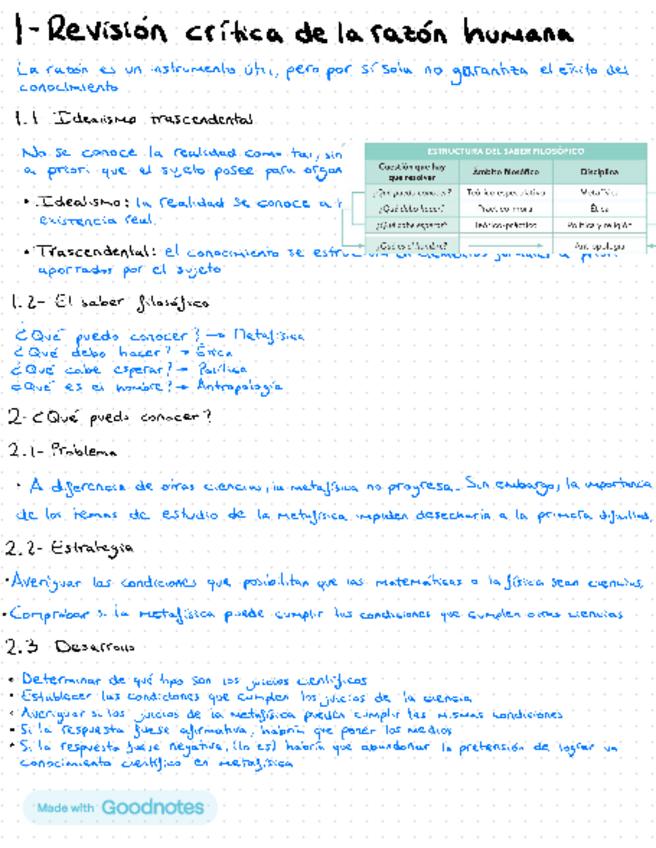 1-Revisión crítica de la razón humana
La razón es un instrumento útil, pero por sí sola no garantiza el éxito del
conocimiento
1.1 Idealismo trascendental
No se conoce la realidad como tal, sin
a priori que el sujeto posee para organ
• Idealismo: la realidad se conoce a
existencia real.
• Trascendental: el conocimiento se estructura en elementos formales a priori
aportados por el sujeto
ESTRUCTURA DEL SABER FILOSÓFICO
Cuestión que hay que resolver Ámbito filosófico Disciplina
¿Qué puedo conocer? Teórico especulativo Metafísica
¿Qué debo hacer? Práctico-moral Ética
¿Qué cabe esperar? Teórico-práctico Política y religión
¿Qué es el hombre? Antropología
1.2- El saber filosófico
¿Qué puedo conocer? → Metafísica
¿Qué debo hacer? → Ética
¿Qué cabe esperar? → Política
¿Qué es el hombre? → Antropología
2- ¿Qué puedo conocer?
2.1- Problema
• A diferencia de otras ciencias, la metafísica no progresa. Sin embargo, la importancia
de los temas de estudio de la metafísica impiden desecharla a la primera dificultad.
2.2- Estrategia
•Averiguar las condiciones que posibilitan que las matemáticas o la física sean ciencias.
•Comprobar si la metafísica puede cumplir las condiciones que cumplen otras ciencias
2.3 Desarrollo
• Determinar de qué tipo son los juicios científicos
• Establecer las condiciones que cumplen los juicios de la ciencia
• Averiguar si los juicios de la metafísica pueden cumplir las mismas condiciones
• Si la respuesta fuese afirmativa, habría que poner los medios
• Si la respuesta fuese negativa, (lo es) habría que abandonar la pretensión de lograr un
conocimiento científico en metafísica
Made with Goodnotes